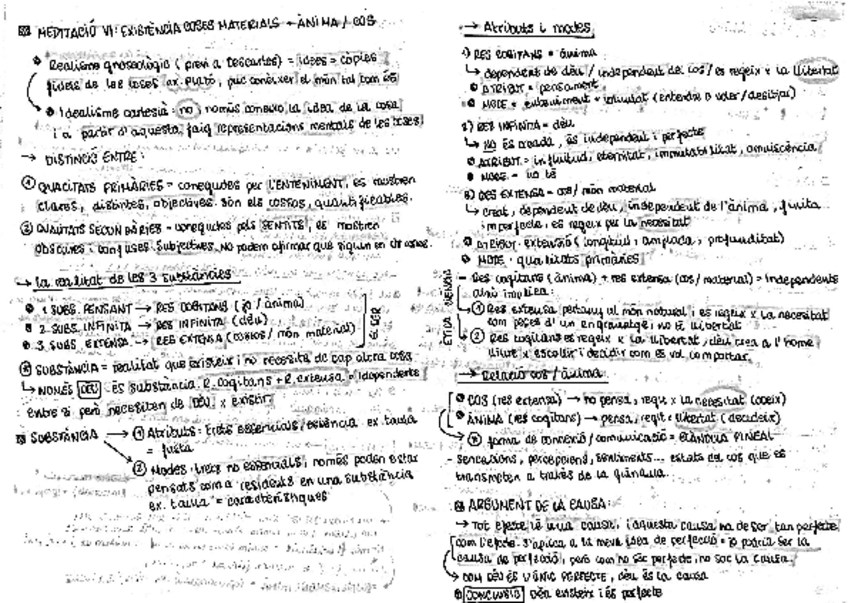 MEDITACIÓ VI: EXISTÈNCIA COSES MATERIALS + ÀNIMA / COS
Realisme gnoseològic (previ a Descartes) = idees = còpies
fidels de les coses ex. Plató, puc conèixer el món tal com és
Idealisme cartesià: no, només conexo la idea de la cosa
i a partir d'aquesta, faig representacions mentals de les coses
→ DISTINCIÓ ENTRE:
① QUALITATS PRIMÀRIES = conegudes per L'ENTENIMENT, es mostren
clares, distintes, objectives. Són els cossos, quantificables.
② QUALITATS SECUNDÀRIES = conegudes pels SENTITS, es mostren
obscures i confuses. Subjectives, no podem afirmar que siguin en
→ La realitat de les 3 substàncies
1 SUBS. PENSANT → RES COGITANS (jo / ànima)
2. SUBS. INFINITA → RES INFINITA (déu)
3. SUBS. EXTENSA → RES EXTENSA (cossos / món material)
SUBSTÀNCIA = realitat que existeix i no necessita de cap altra cosa
↳ NOMÉS DÉU és substància. R. cogitans + R. extensa = independents
entre si però necessiten de DÉU x existir
SUBSTÀNCIA → ① Atributs: trets essencials / essència ex. taula
= fusta
② Modes: trets no essencials, només poden estar
pensats com a residents en una substància
ex. taula = característiques
→ Atributs i modes
1) RES COGITANS = ànima
↳ dependent de déu / independent del cos / es regeix x la llibertat
ATRIBUT = pensament
MODE = enteniment + voluntat (entendre o voler / desitjar)
2) RES INFINITA = déu
↳ NO és creada, és independent i perfecte
ATRIBUT = infinitud, eternitat, immutabilitat, omniscència
MODE = no té
3) RES EXTENSA = cos / món material
↳ creat, dependent de déu, independent de l'ànima, finita
imperfecte, es regeix per la necessitat
ATRIBUT: extensió (longitud, amplada, profunditat)
MODE: qualitats primàries
- Res cogitans (ànima) + res extensa (cos / material) = independents
això implica:
CIÈNCIA
① Res extensa pertany al món natural i es regeix x la necessitat
com peces d'un engranatge, no té llibertat
ÈTICA
② Res cogitans es regeix x la llibertat, déu crea a l'home
lliure x escollir i decidir com es vol comportar.
→ Relació cos / ànima
COS (res extensa) → no pensa, regit x la necessitat (obeix)
ÀNIMA (res cogitans) → pensa, regit x llibertat (decideix)
forma de connexió / comunicació = GLÀNDULA PINEAL
- sensacions, percepcions, sentiments... estats del cos que es
transmeten a través de la glàndula...
ARGUMENT DE LA CAUSA:
→ Tot efecte té una causa, i aquesta causa ha de ser tan perfecte
com l'efecte. S'aplica a la meva idea de perfecció = jo podria ser la
causa de perfecció, però com no sóc perfecte, no sóc la causa.
→ COM DÉU ÉS L'ÚNIC PERFECTE, déu és la causa
CONCLUSIÓ Déu existeix i és perfecte